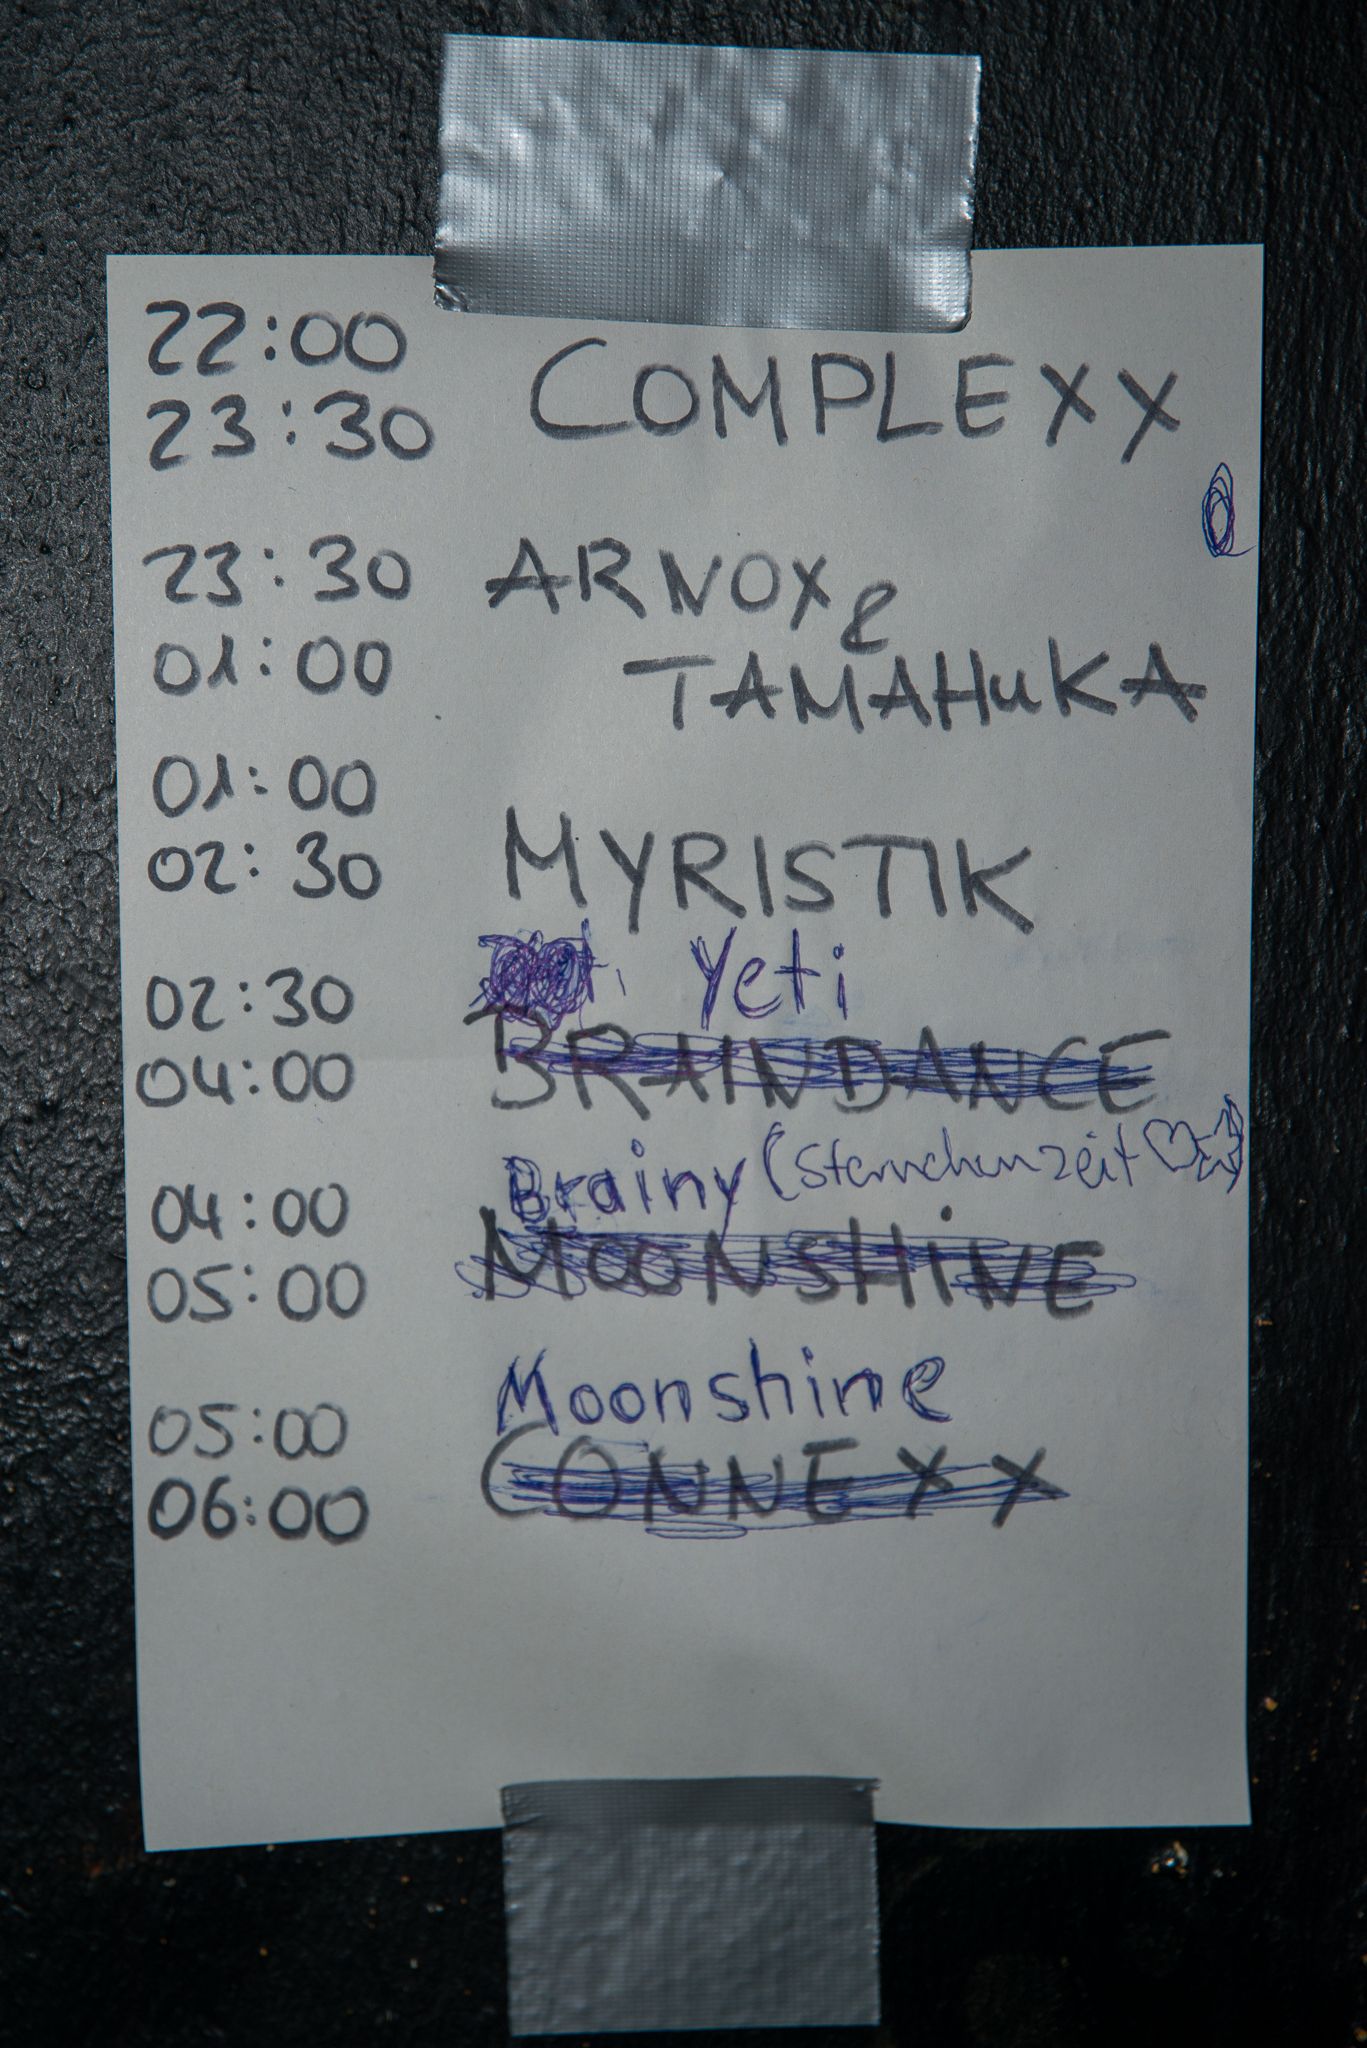 22:00
COMPLEXX
23:30
23:30 ARNOX &
01:00 TAMAHUKA
01:00
02:30 MYRISTIK
Yeti
02:30
04:00 BRAINDANCE
Brainy (Sternchenzeit ♡☆)
04:00
05:00 MOONSHiNE
Moonshine
05:00
06:00 CONNEXX